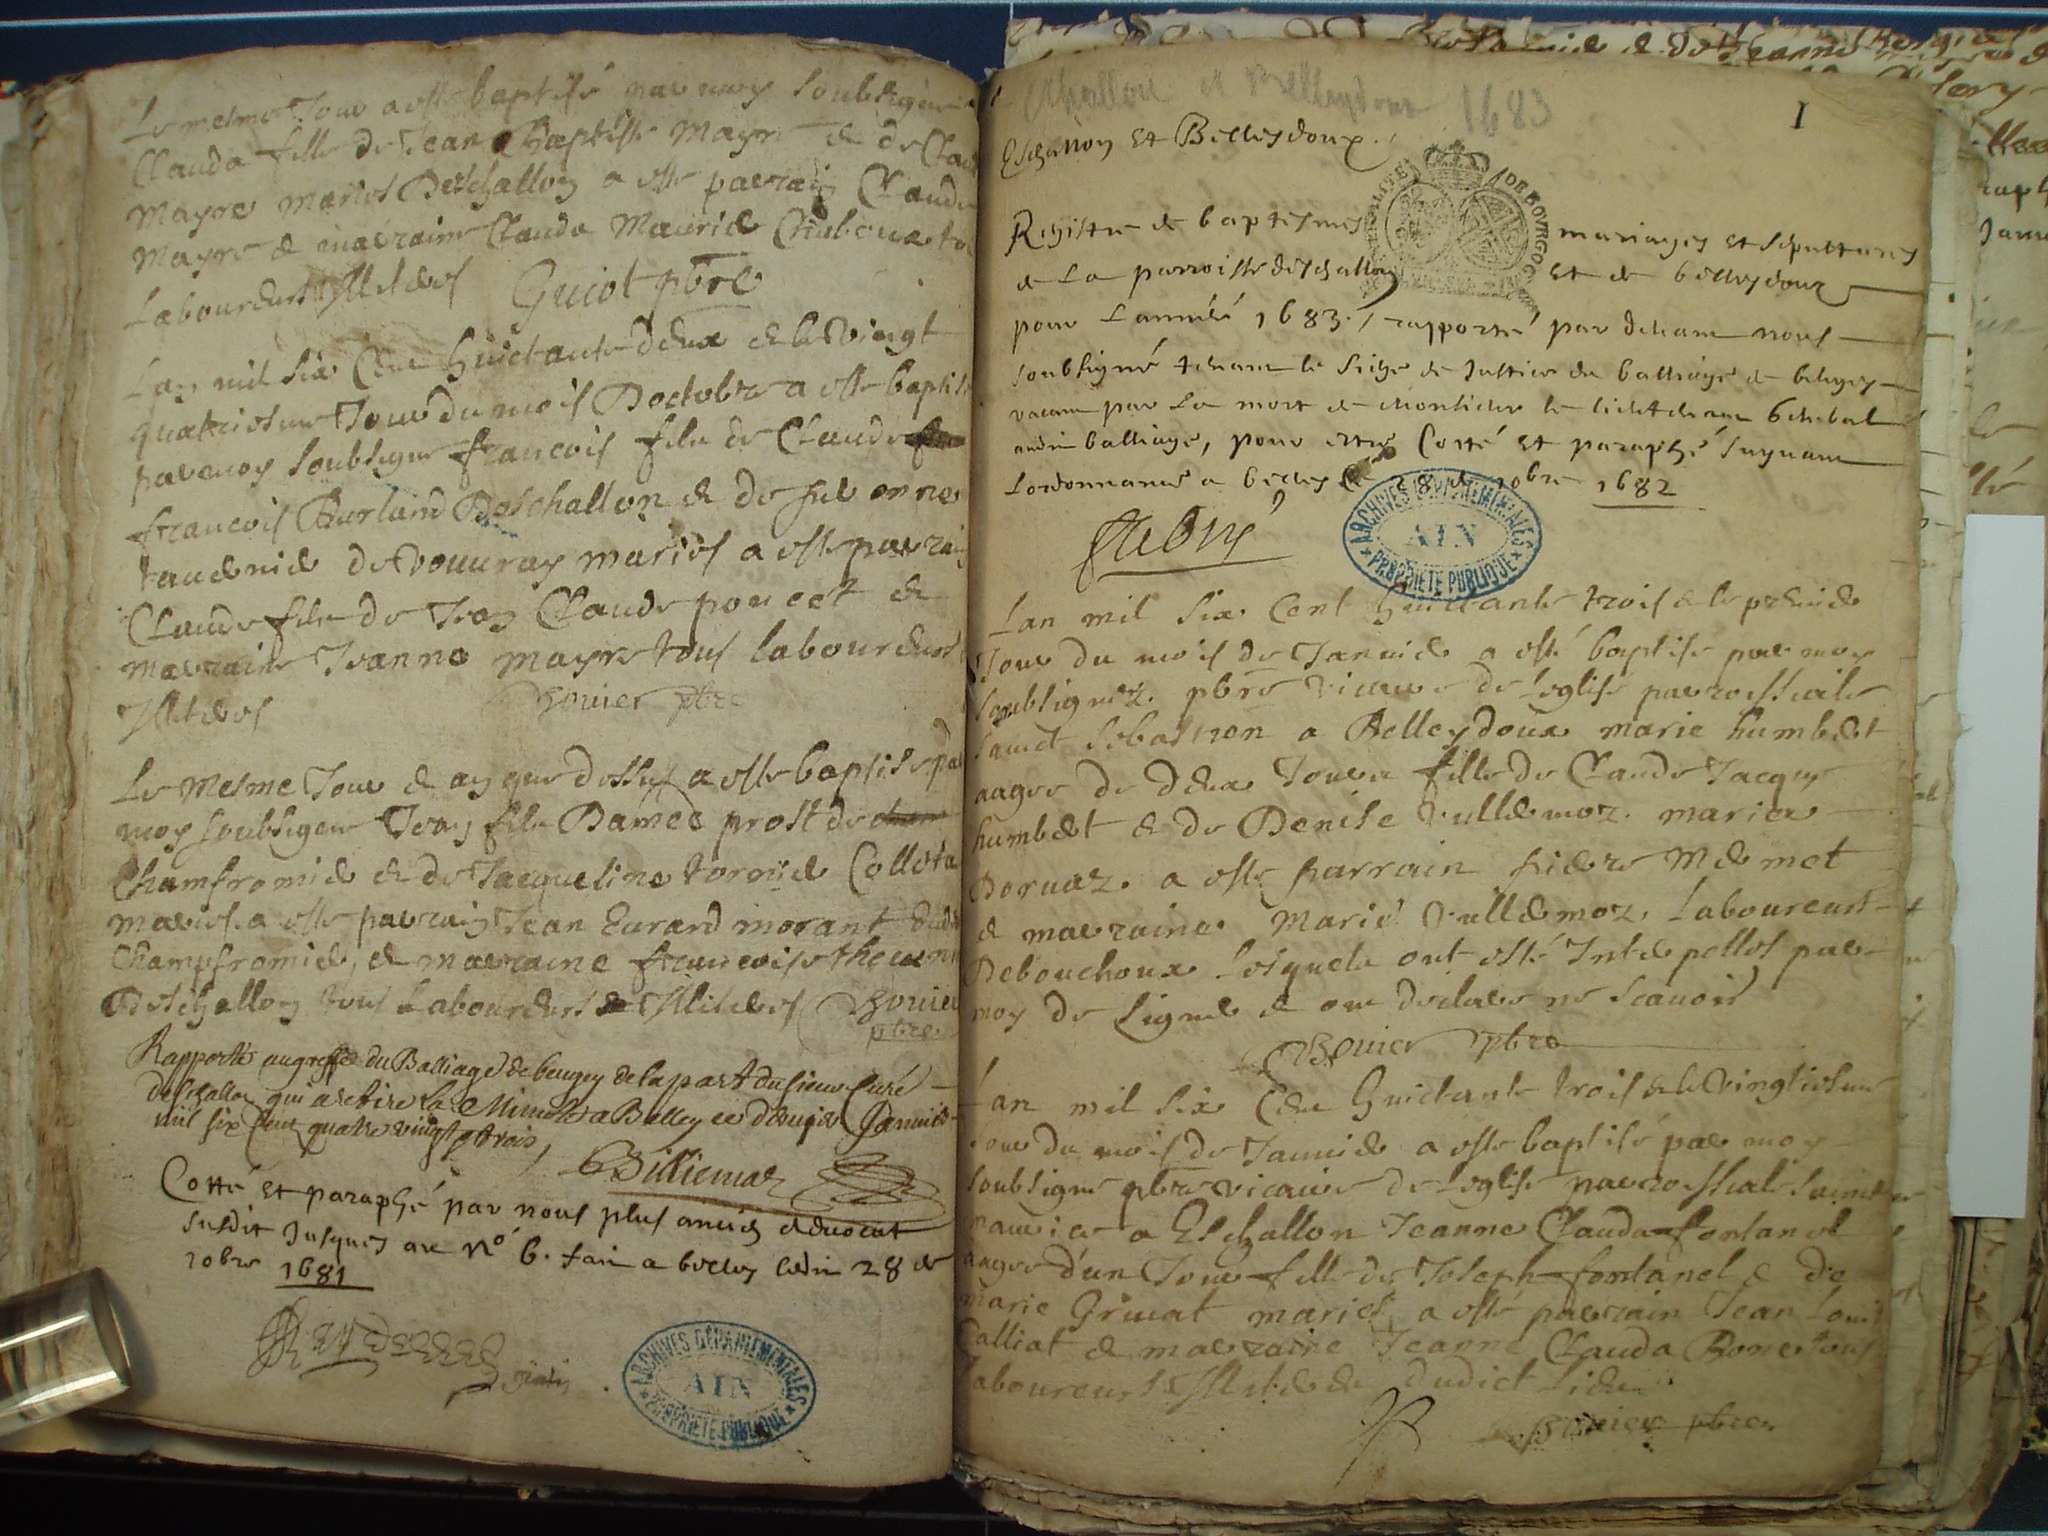 Le mesme Jour a este baptisé par moy soubsigné
Clauda fille de Jean Baptiste Mayre & de
Mayre mariés Deschallon a este parrain Claude
Mayre & marraine Clauda
Laboureurs Illiterés Guiot pbre
Lan mil six Cent huictante deux & le vingt
quatriesme Jour du mois Doctobre a este baptisé
par moy soubsigné francois fils de Claude
francois Burland Deschallon & de
mariés a este parrain
Claude fils de Jean Claude poncet &
marraine Jeanne Mayre tous laboureurs
Illiterés Bovier pbre
Le Mesme Jour & an que dessus a este baptisé par
moy soubsigne Jean fils Damee prost de
Champfromier & de Jacqueline tornier Colleta
mariés a este parrain Jean Evrard morant dudit
Champfromier, & marraine francoise
Deschallon tous Laboureurs & Illiterés Bovier
pbre
Rapporté au greffe du Balliage de beugey de la part du sieur Curé
deschallon qui a retiré la Minute a Belley ce Janvier
mil six Cent quatre vingt & trois,
Billiemaz
Cotté et paraphé par nous plus ancien advocat
susdit Jusques au No 6. fait a belley cedit 28 de
xobre 1681
Challon et Belleydoux 1683
1
Eschallon et Belleydoux.
GENERALITE DE BOURGOGNE
Registre de baptesmes mariages et sepultures
de la parroisse deschallon et de belleydoux
pour Lannéé 1683. / rapporté par devant nous
soubsigné tenant le siege de Justice du balliage de beugey
vacant par la mort de Monsieur le lieutenant general
audit balliage, pour estre Cotté et paraphé suyvant
Lordonnance a belley ce 28 de xobre 1682
ARCHIVES DÉPARTEMENTALES
AIN
PROPRIÉTÉ PUBLIQUE
Lan mil six Cent huictante trois & le premier
Jour du mois de Janvier a esté baptisé par moy
soubsignez pbre vicaire de Leglise parroissiale
sainct sebastien a Belleydoux marie humbert
aagée de deux Jours fille de Claude Jacques
humbert & de Denise Vullermoz mariez
Dorvaz. a este parrain pierre Mermet
& marraine Marie Vullermoz Laboureurs
Debouchoux lesquels ont esté Interpellés par
moy de signer & ont declaré ne scavoir
Bovier pbre
Lan mil six Cent huictante trois & le vingtiesme
Jour du mois de Janvier a este baptisé par moy
soubsigné pbre vicaire de Leglise parroissiale sainct
maurice a Eschallon Jeanne Clauda fontanel
aagée dun Jour fille de Joseph fontanel & de
marie Grivat mariés, a esté parrain Jean Louis
Calliat & marraine Jeanne Clauda Bone tous
Laboureurs Illiterés dudict lieu
Bovier pbre
ARCHIVES DÉPARTEMENTALES
AIN
PROPRIÉTÉ PUBLIQUE